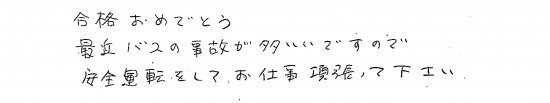 合格おめでとう
最近バスの事故が多いいですので
安全運転をして、お仕事頑張って下さい